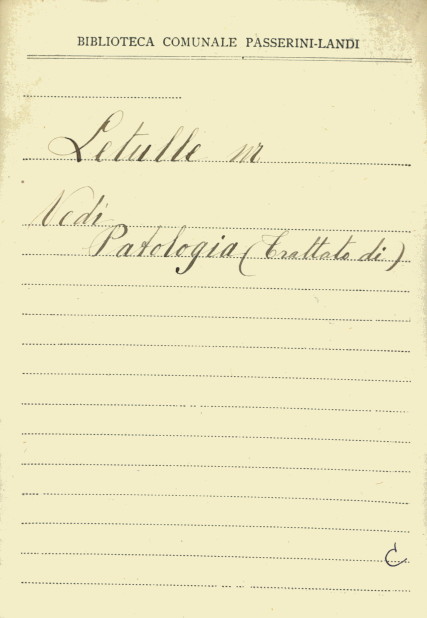 BIBLIOTECA COMUNALE PASSERINI-LANDI
Letulle M
Vedi
Patologia (Trattato di)
C